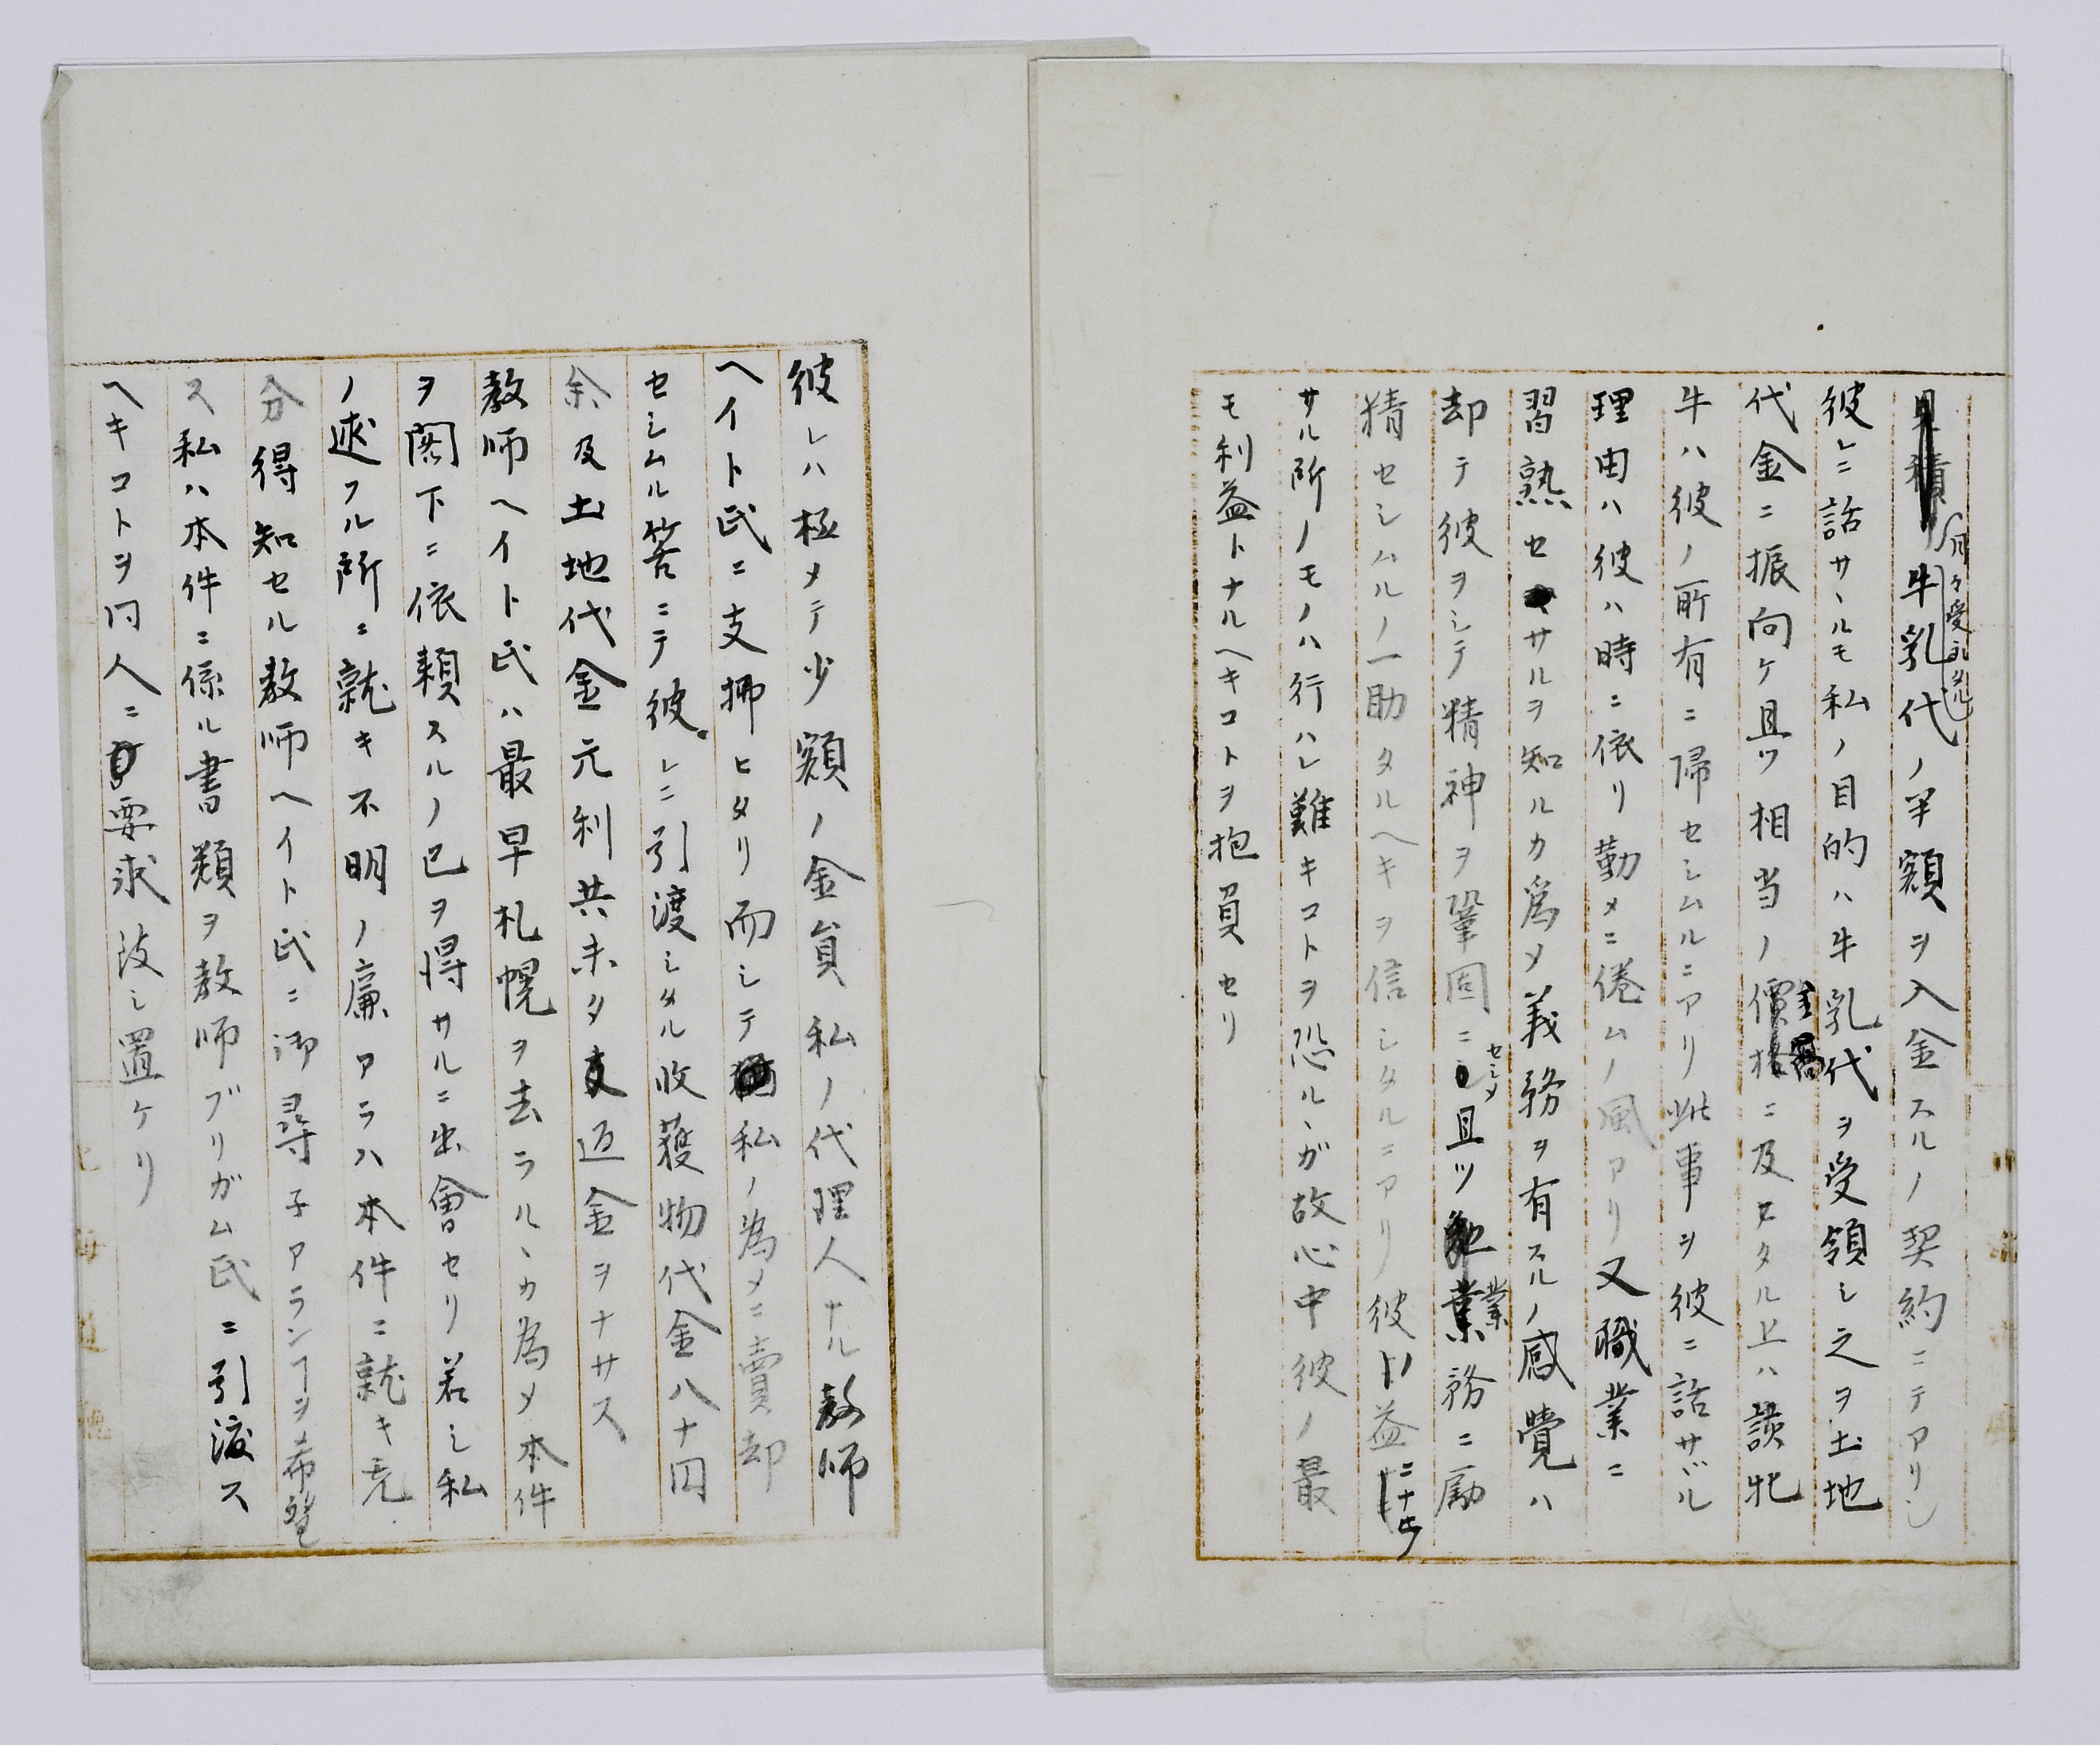 牛乳代ノ半額ヲ入金スルノ契約ニテアリシ
彼レニ話サヽルモ私ノ目的ハ牛乳代ヲ受領シ之ヲ土地
代金ニ振向ケ且ツ相当ノ價格ニ及ヒタル上ハ該牝
牛ハ彼ノ所有ニ帰セシムルニアリ此事ヲ彼ニ話サヾル
理由ハ彼ハ時ニ依リ勤メニ倦ムノ風アリ又職業ニ
習熟セサルヲ知ルカ為メ義務ヲ有スルノ感覺ハ
却テ彼ヲシテ精神ヲ鞏固ニセシメ且ツ業務ニ勵
精セシムルノ一助タルヘキヲ信シタルニアリ彼
サル所ノモノハ行ハレ難キコトヲ恐ルヽガ故心中彼ノ最
モ利益トナルヘキコトヲ抱負セリ
彼レハ極メテ少額ノ金員私ノ代理人ナル教師
ヘイト氏ニ支拂ヒタリ而シテ私ノ為メニ賣却
セシムル筈ニテ彼レニ引渡シタル收獲物代金八十円
余及土地代金元利共未タ返金ヲナサス
教師ヘイト氏ハ最早札幌ヲ去ラルヽカ為メ本件
ヲ閣下ニ依頼スルノ已ヲ得サルニ出會セリ若シ私
ノ述フル所ニ就キ不明ノ廉アラハ本件ニ就キ充
分得知セル教師ヘイト氏ニ御尋子アランヿヲ希望
ス私ハ本件ニ係ル書類ヲ教師ブリガム氏ニ引渡ス
ヘキコトヲ同人ニ要求致シ置ケリ